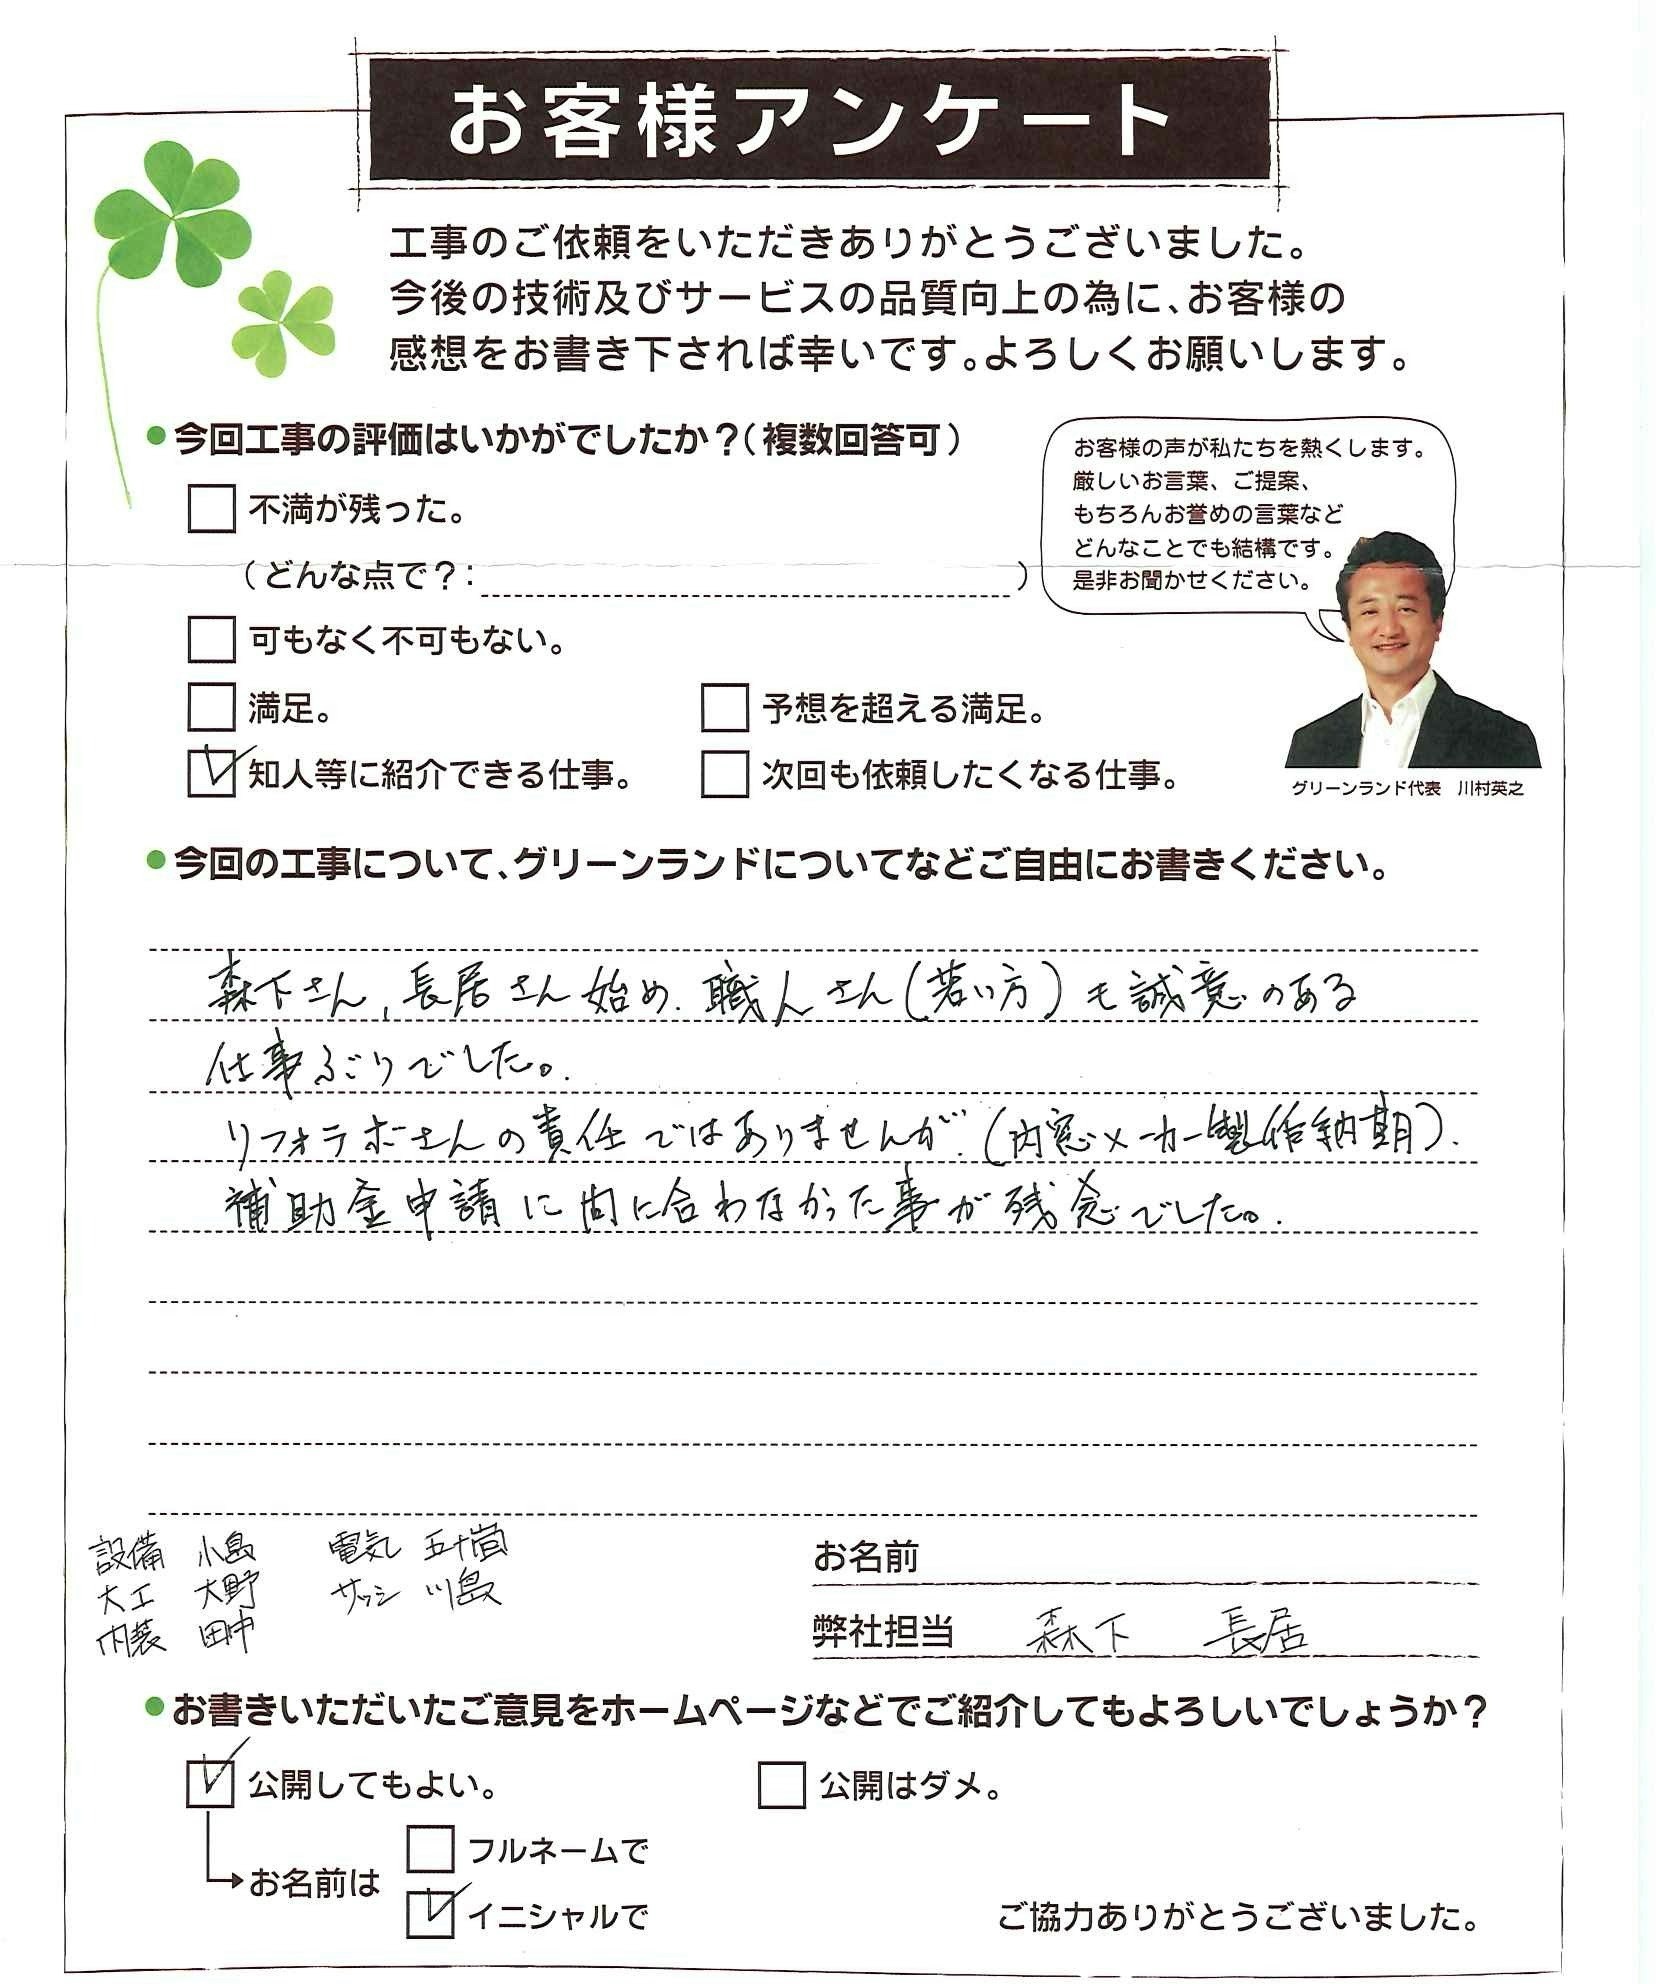 お客様アンケート
工事のご依頼をいただきありがとうございました。
今後の技術及びサービスの品質向上の為に、お客様の
感想をお書き下されば幸いです。よろしくお願いします。
●今回工事の評価はいかがでしたか？（複数回答可）
不満が残った。
（どんな点で？：　）
可もなく不可もない。
満足。
予想を超える満足。
知人等に紹介できる仕事。
次回も依頼したくなる仕事。
お客様の声が私たちを熱くします。
厳しいお言葉、ご提案、
もちろんお誉めの言葉など
どんなことでも結構です。
是非お聞かせください。
グリーンランド代表　川村英之
●今回の工事について、グリーンランドについてなどご自由にお書きください。
森下さん、長居さん始め、職人さん（若い方）も誠意のある
仕事ぶりでした。
リフォラボさんの責任ではありませんが、（内窓メーカー製作納期）、
補助金申請に間に合わなかった事が残念でした。
設備　小島　電気　五十嵐
大工　大野　サッシ　川島
内装　田中
お名前
弊社担当　森下　長居
●お書きいただいたご意見をホームページなどでご紹介してもよろしいでしょうか？
公開してもよい。
公開はダメ。
お名前は
フルネームで
イニシャルで
ご協力ありがとうございました。